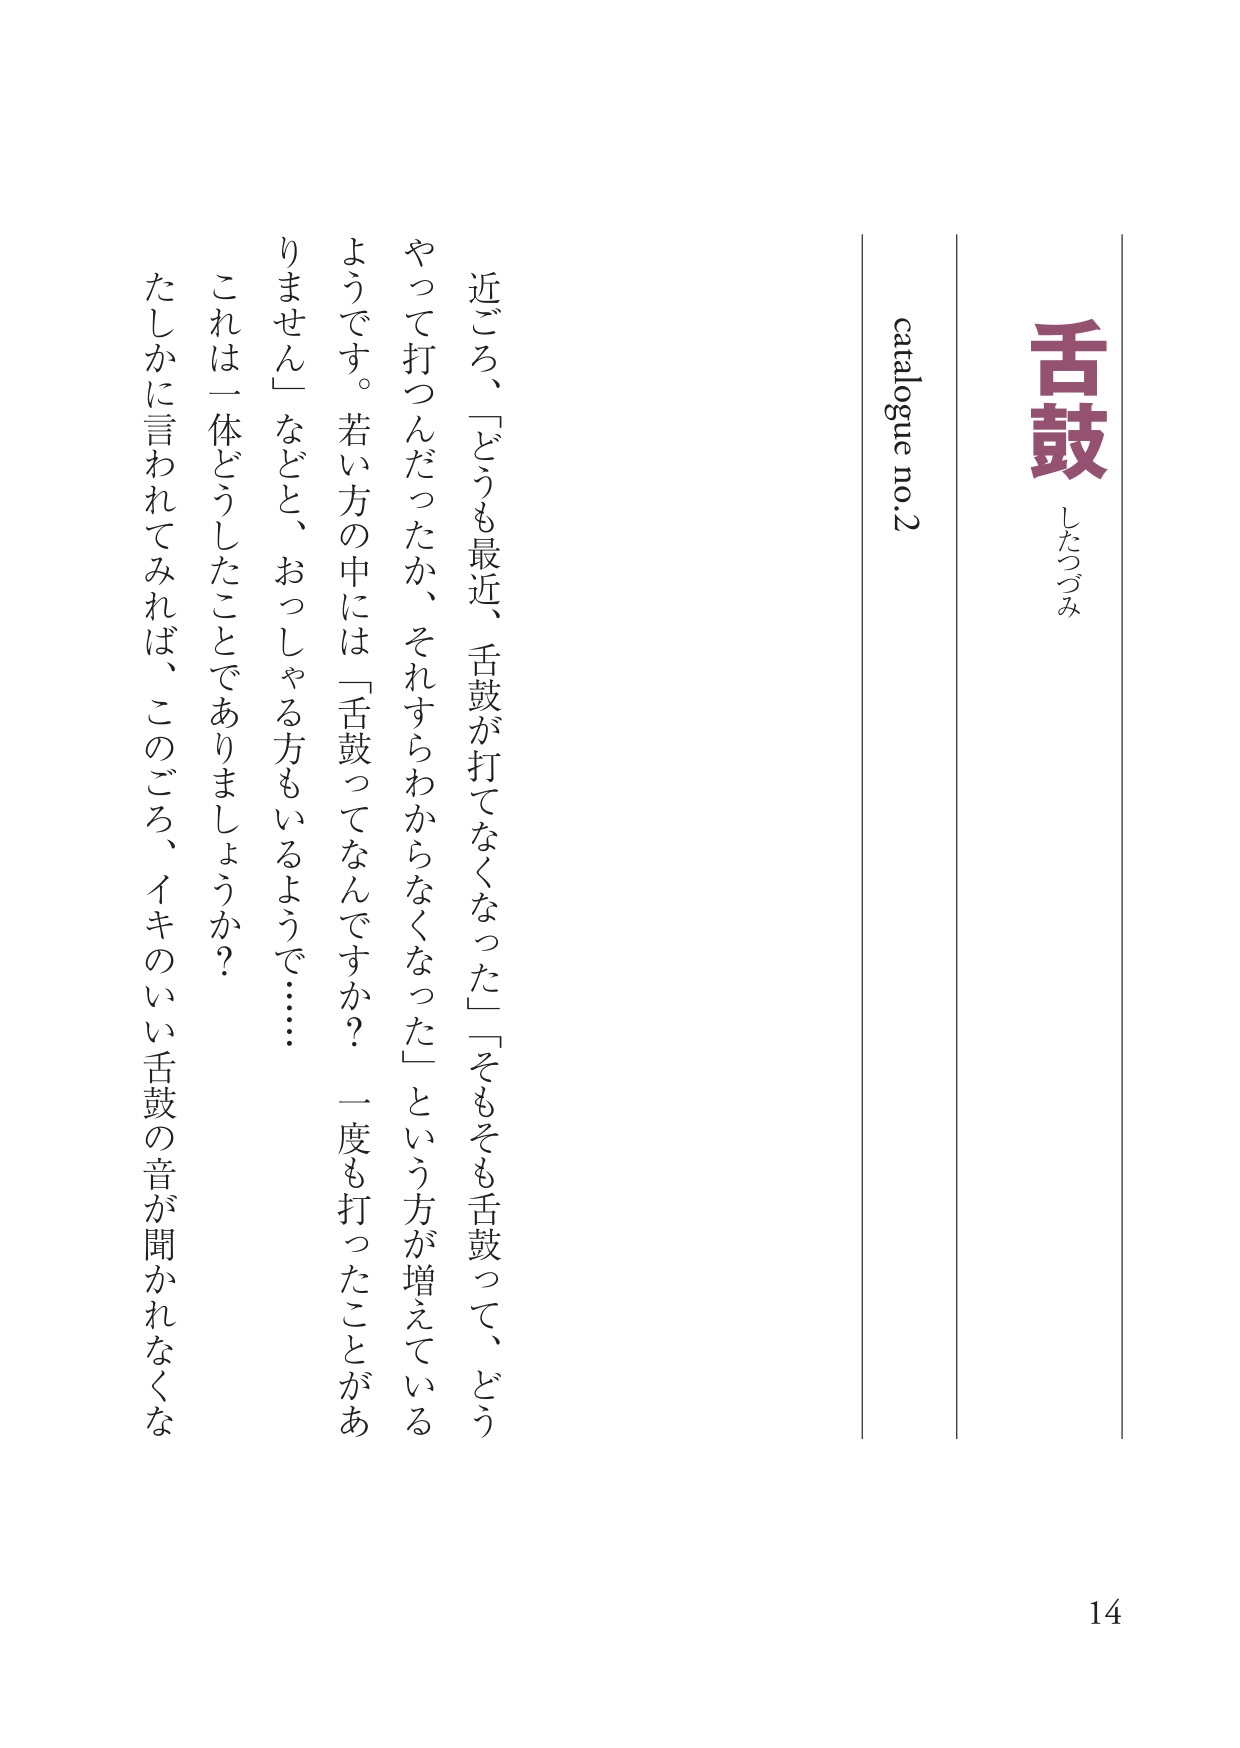 舌鼓 したつづみ
catalogue no.2
近ごろ、「どうも最近、舌鼓が打てなくなった」「そもそも舌鼓って、どう
やって打つんだったか、それすらわからなくなった」という方が増えている
ようです。若い方の中には「舌鼓ってなんですか？　一度も打ったことがあ
りません」などと、おっしゃる方もいるようで……
これは一体どうしたことでありましょうか？
たしかに言われてみれば、このごろ、イキのいい舌鼓の音が聞かれなくな
14